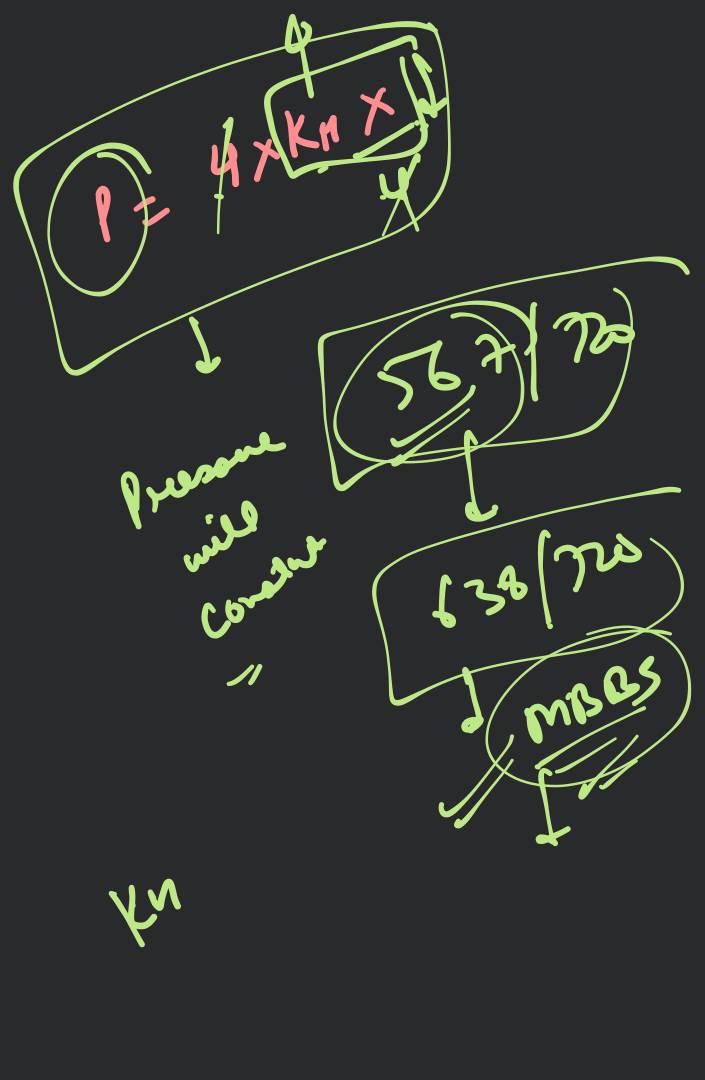 P = 4 × KH ×
567/720
Pressure
will
Constut
638/720
MBBS
KH